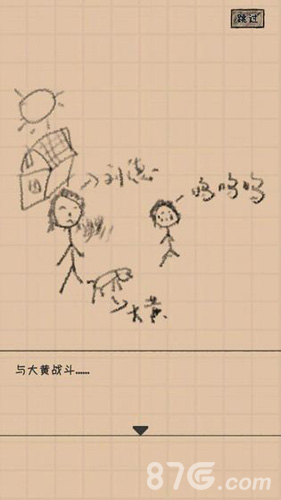 跳过
刘德
呜呜呜
大黄
与大黄战斗……
87G.com